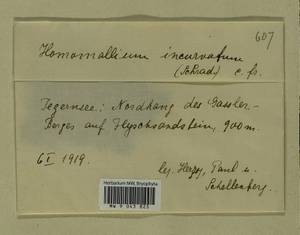 607
Homomallium incurvatum
(Schrad.) c. fr.
Tegernsee: Nordhang des Gassler-
Berges auf Flyschsandstein, 900 m.
6 I. 1919.
leg. Herzog, Paul u.
Schellenberg.
Herbarium MW, Bryophyta
MW 9 043 803